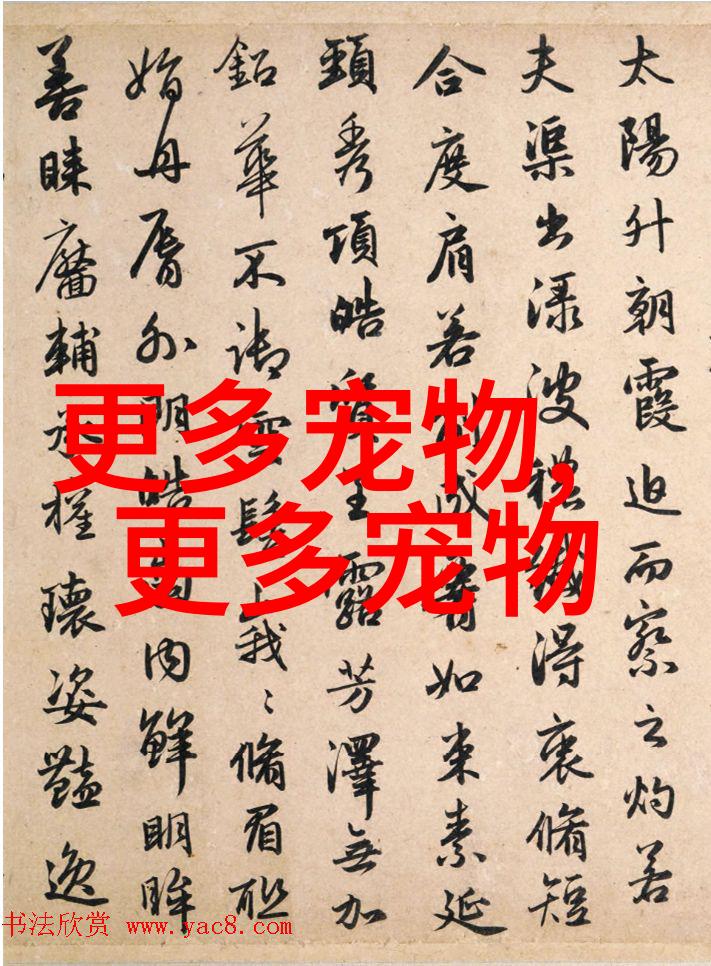 太陽升朝霞迫而察之灼若
夫渠出淥波穠纖得衷脩短
合度肩若削成如束素延
頸秀項皓質呈露芳澤無加
鉛華不御雲髻峩〻脩眉聯
娟丹脣外朗皓齒内鮮明眸
善睞靨輔承權瓌姿豔逸
更多宠物,
更多宠物
书法欣赏 www.yac8.com